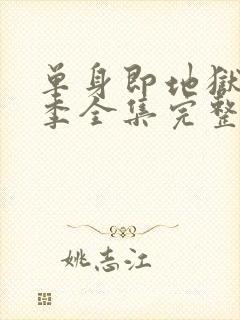 单身即地狱
季全集完整
姚志江